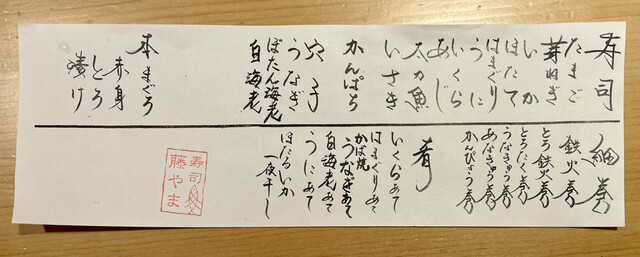 寿司
たまご
芽ねぎ
いか
ほたて
はまぐり
うに
いくら
あじ
太刀魚
いさき
かんぱち
穴子
うなぎ
ぼたん海老
白海老
本まぐろ
赤身
とろ
漬け
細巻
鉄火巻
とろ鉄火巻
とろたく巻
うなきゅう巻
あなきゅう巻
かんぴょう巻
肴
いくらあて
はまぐりあて
かば焼
うなぎあて
白海老あて
うにあて
ほたるいか
一夜干し
寿司
藤やま